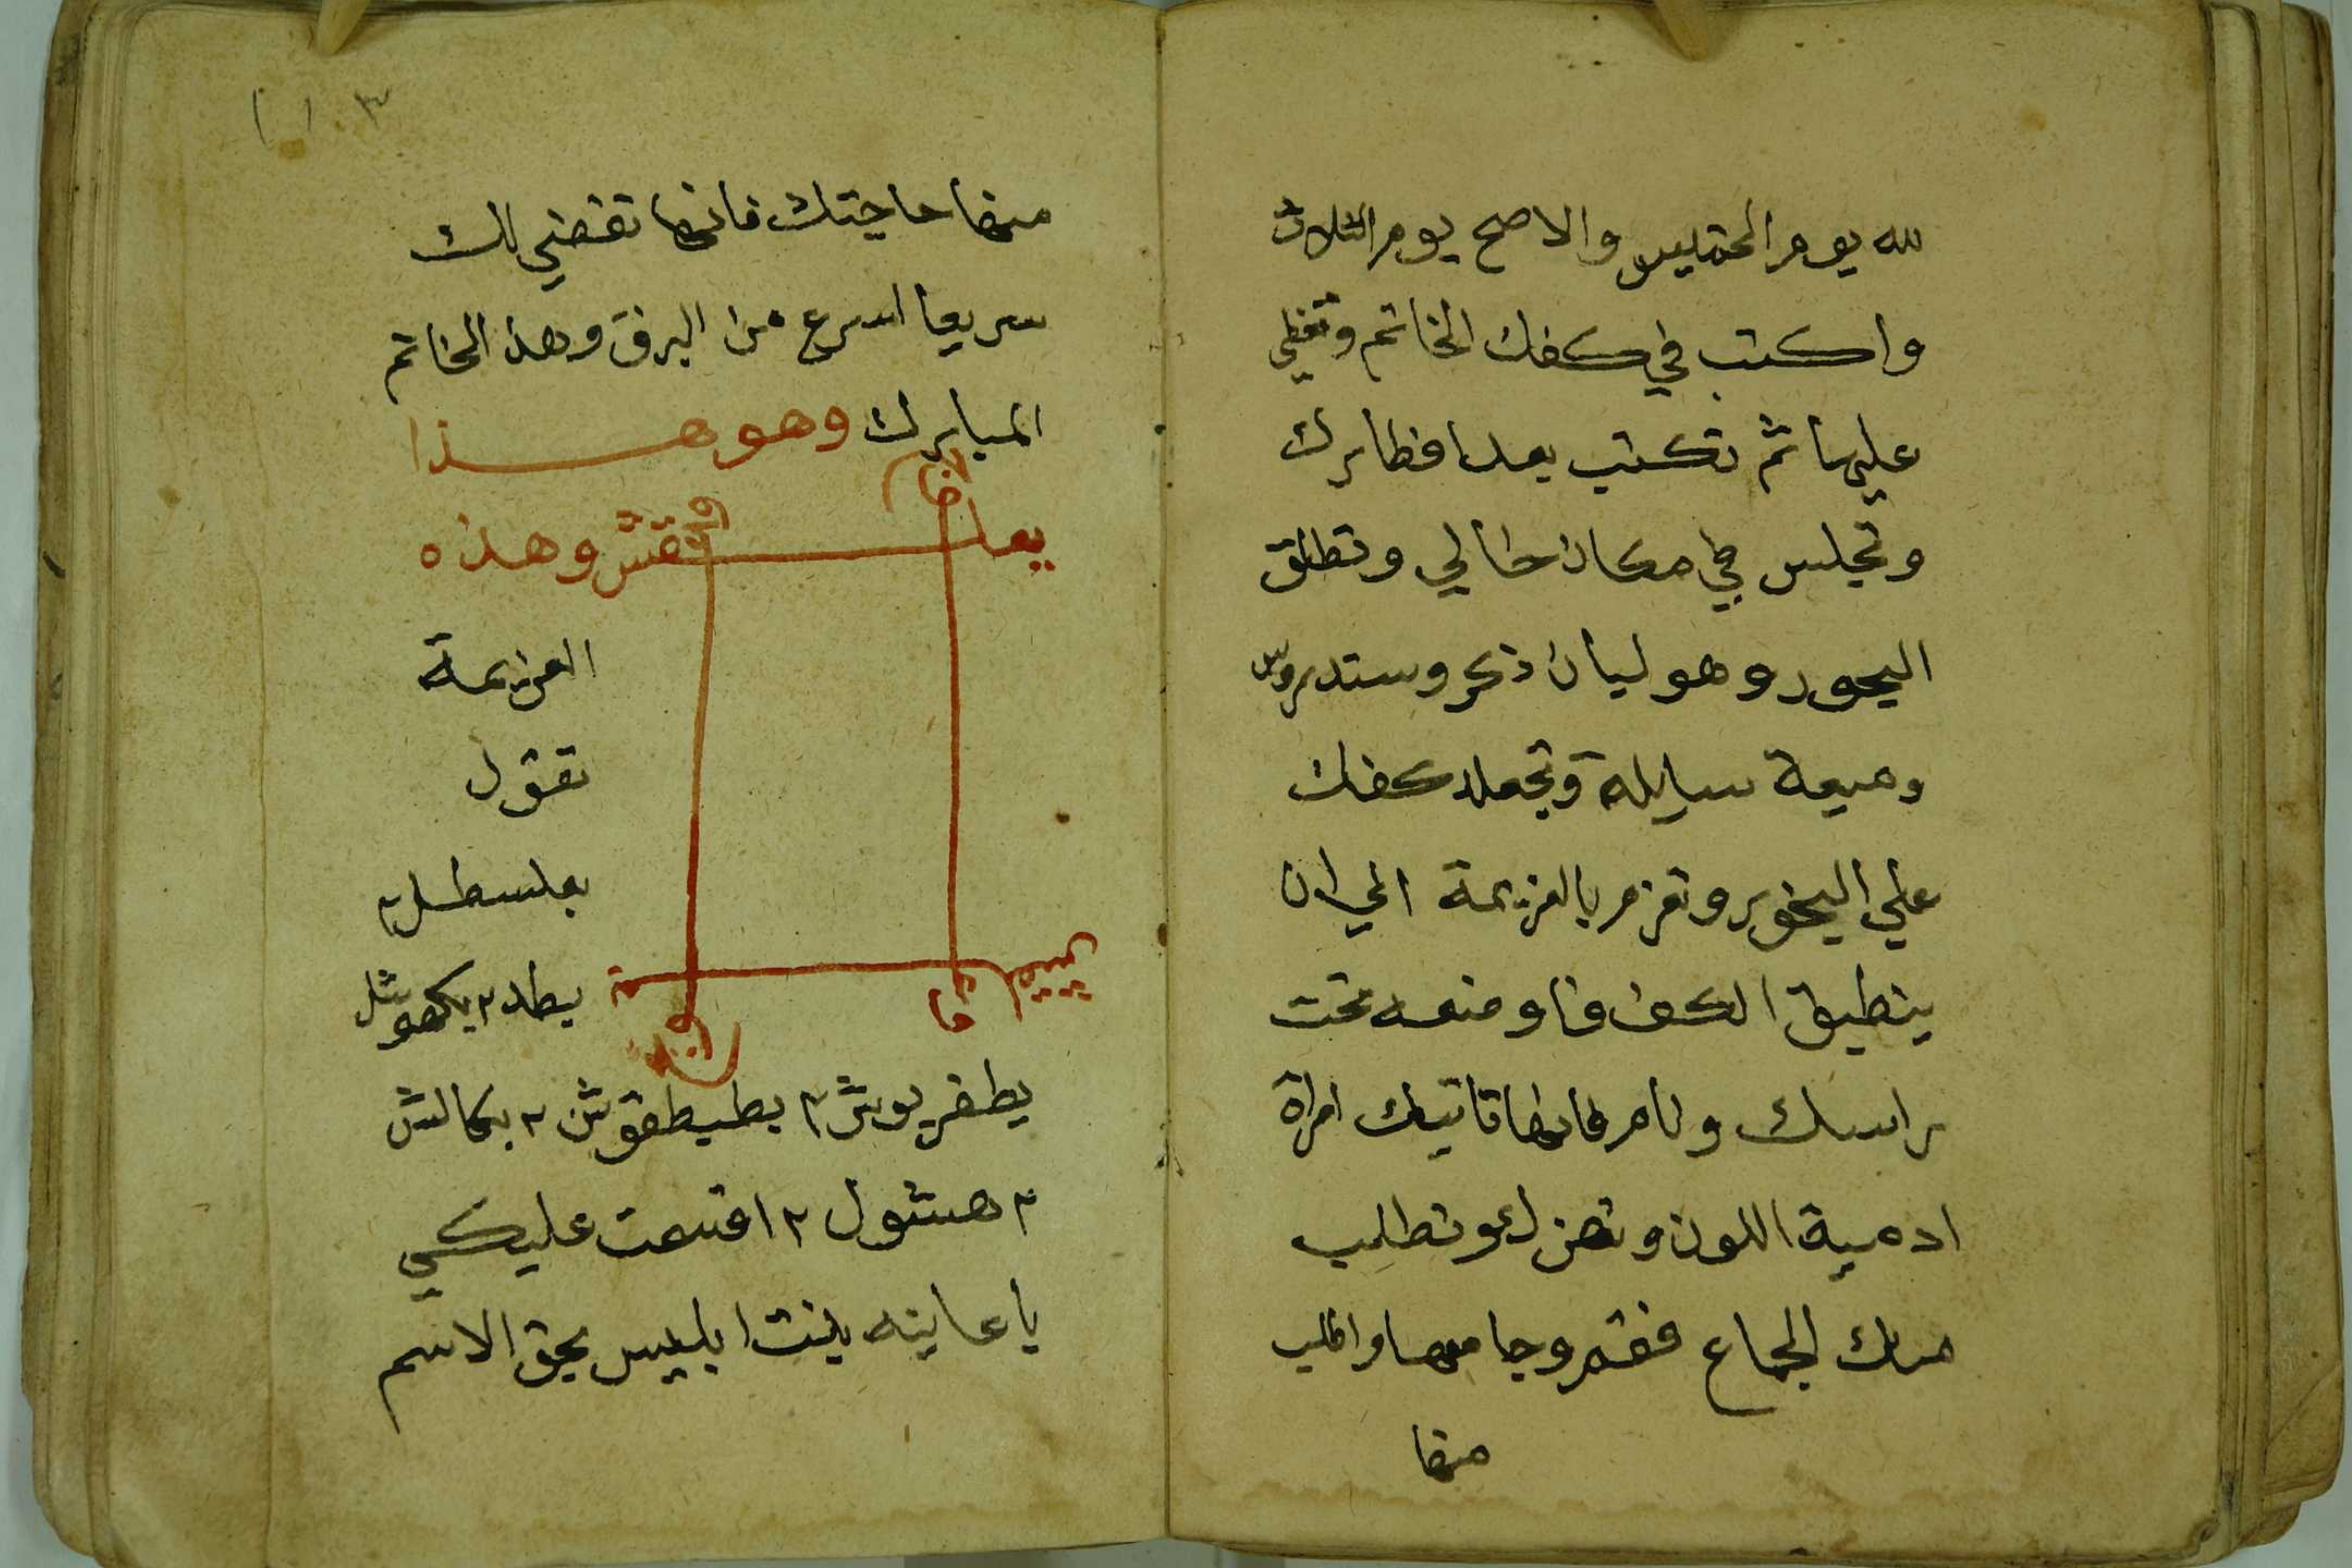 لله يوم الخميس والاصح يوم الثلاث
واكتب في كفك الخاتم وتغطي
عليها ثم تكتب بعد افطارك
وتجلس في مكان خالي وتطلق
البخور وهو لبان ذكر وسندروس
وميعة سايلة وتجعل كفك
علي البخور وتعزم بالعزيمة الي ان
ينطبق الكف فا وضعه تحت
راسك ونام فانها تاتيك امراة
ادمية اللون وتطلب
منك الجماع فقم وجامعها واطلب
منها
منها حاجتك فانها تقضي لك
سريعا اسرع من البرق وهذ الخاتم
المبارك وهو هذا
وهذه
العزيمة
تقول
بعلسطل ٢
بطد ٢ يكهوشل
يطفريوش ٢ بطيطقوش ٢ بكالش
٢ هشول ٢ اقسمت عليكي
يا عاينه بنت ابليس بحق الاسم